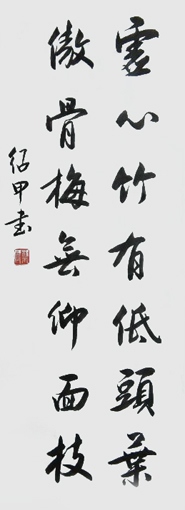 虛心竹有低頭葉
傲骨梅無仰面枝
紹甲書